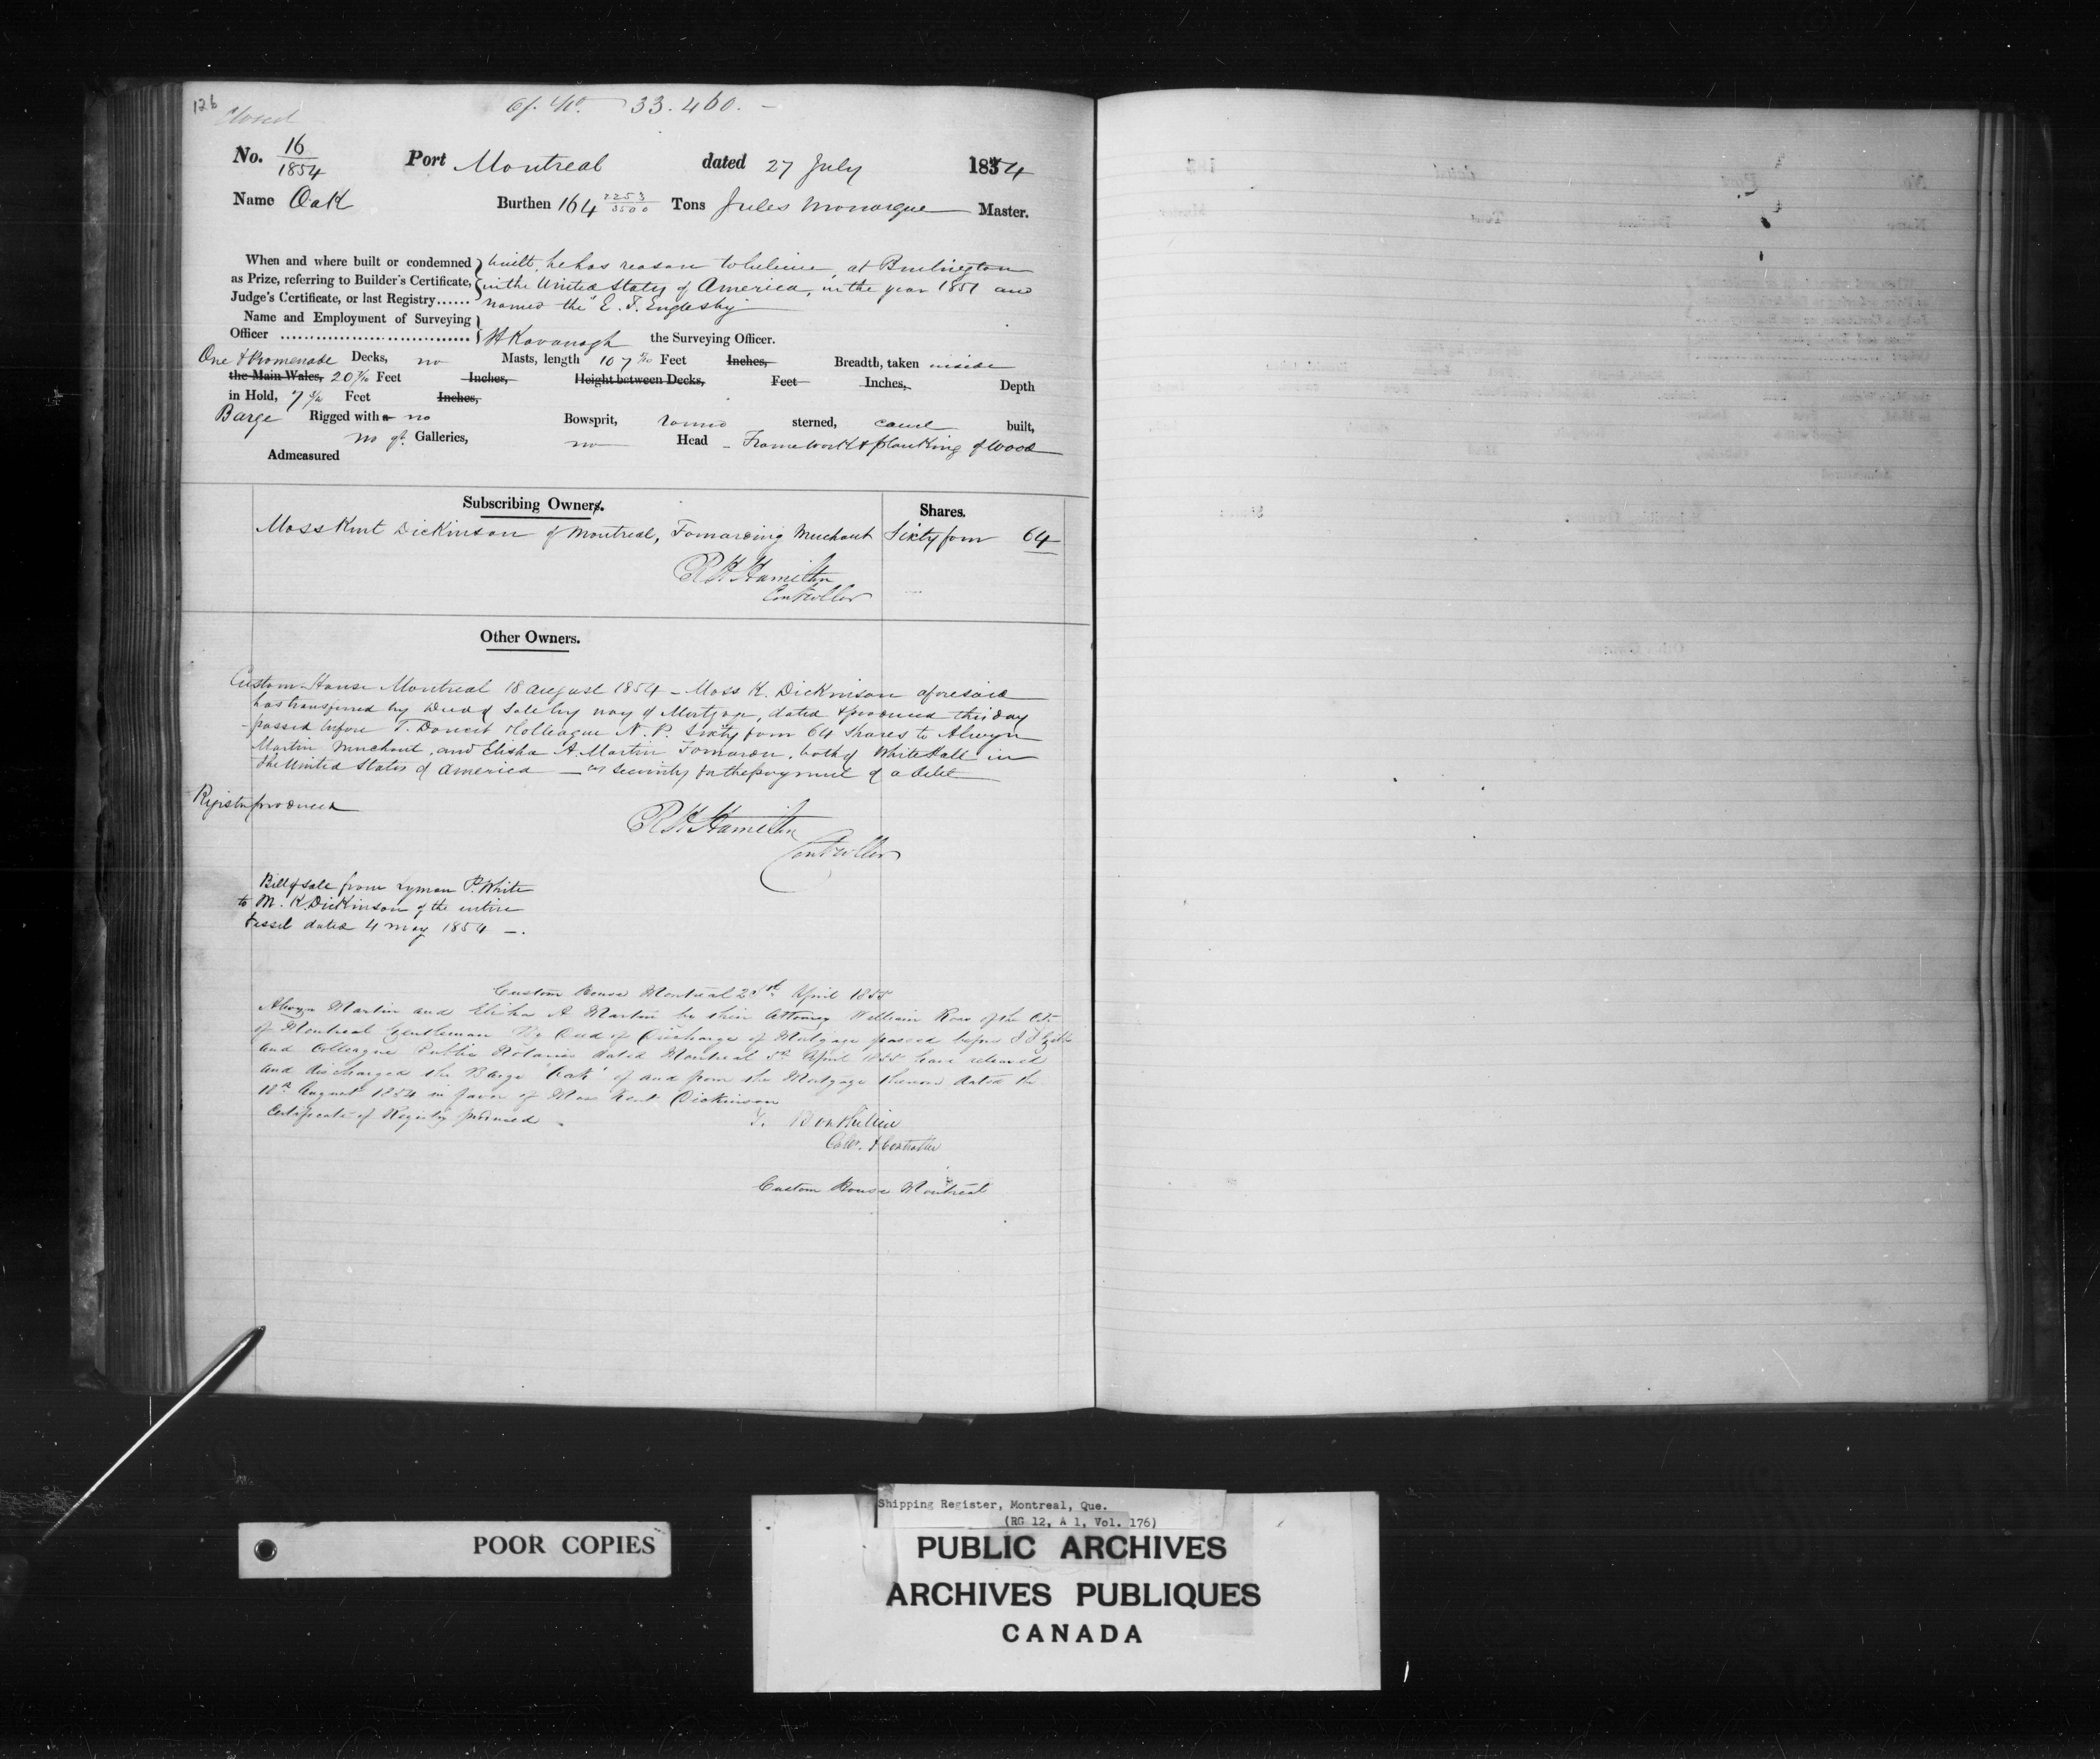 126
Closed
Of. No. 33.460. -
No. 16/1854 Port Montreal dated 27 July 1854
Name Oak Burthen 164 2253/3500 Tons Jules Monarque Master.
When and where built or condemned built, he has reason to believe, at Burlington
as Prize, referring to Builder's Certificate, in the United States of America, in the year 1851 and
Judge's Certificate, or last Registry...... named the "E. F. Englesby"
Name and Employment of Surveying
Officer ................................ H Kavanagh the Surveying Officer.
One & Promenade Decks, no Masts, length 107 Feet Inches, Breadth, taken inside
the Main Wales, 20 Feet Inches, Height between Decks, Feet Inches, Depth
in Hold, 7 Feet Inches,
Barge Rigged with a no Bowsprit, round sterned, carvel built,
no qr. Galleries, no Head - Framework & planking of Wood
Admeasured
Subscribing Owners. Shares.
Moss Kent Dickinson of Montreal, Forwarding Merchant Sixty four 64
R H Hamilton
Controller
Other Owners.
Custom House Montreal 18 August 1854 - Moss K. Dickinson aforesaid
has transferred by Deed of Sale by way of Mortgage, dated & produced this day
passed before T. Doucet & Colleague N. P. Sixty four 64 Shares to Alwyn
Martin Merchant, and Elisha A. Martin Forwarder, both of White Hall in
the United States of America — as security for the payment of a debt
Register produced
R H Hamilton
Controller
Bill of Sale from Lyman P. White
to M. K. Dickinson of the entire
Vessel dated 4 May 1854 -.
Custom House Montreal April 1855
Alwyn Martin and Elisha A Martin by their Attorney William Ross of the City
of Montreal Gentleman By Deed of Discharge of Mortgage passed before
and Colleague Public Notaries dated Montreal 5th April 1855 have released
and discharged the Barge "Oak" of and from the Mortgage thereon dated the
18th August 1854 in favor of Moss Kent Dickinson
Certificate of Registry produced
Collr. & Controller
Custom House Montreal
POOR COPIES
Shipping Register, Montreal, Que.
(RG 12, A 1, Vol. 176)
PUBLIC ARCHIVES
ARCHIVES PUBLIQUES
CANADA